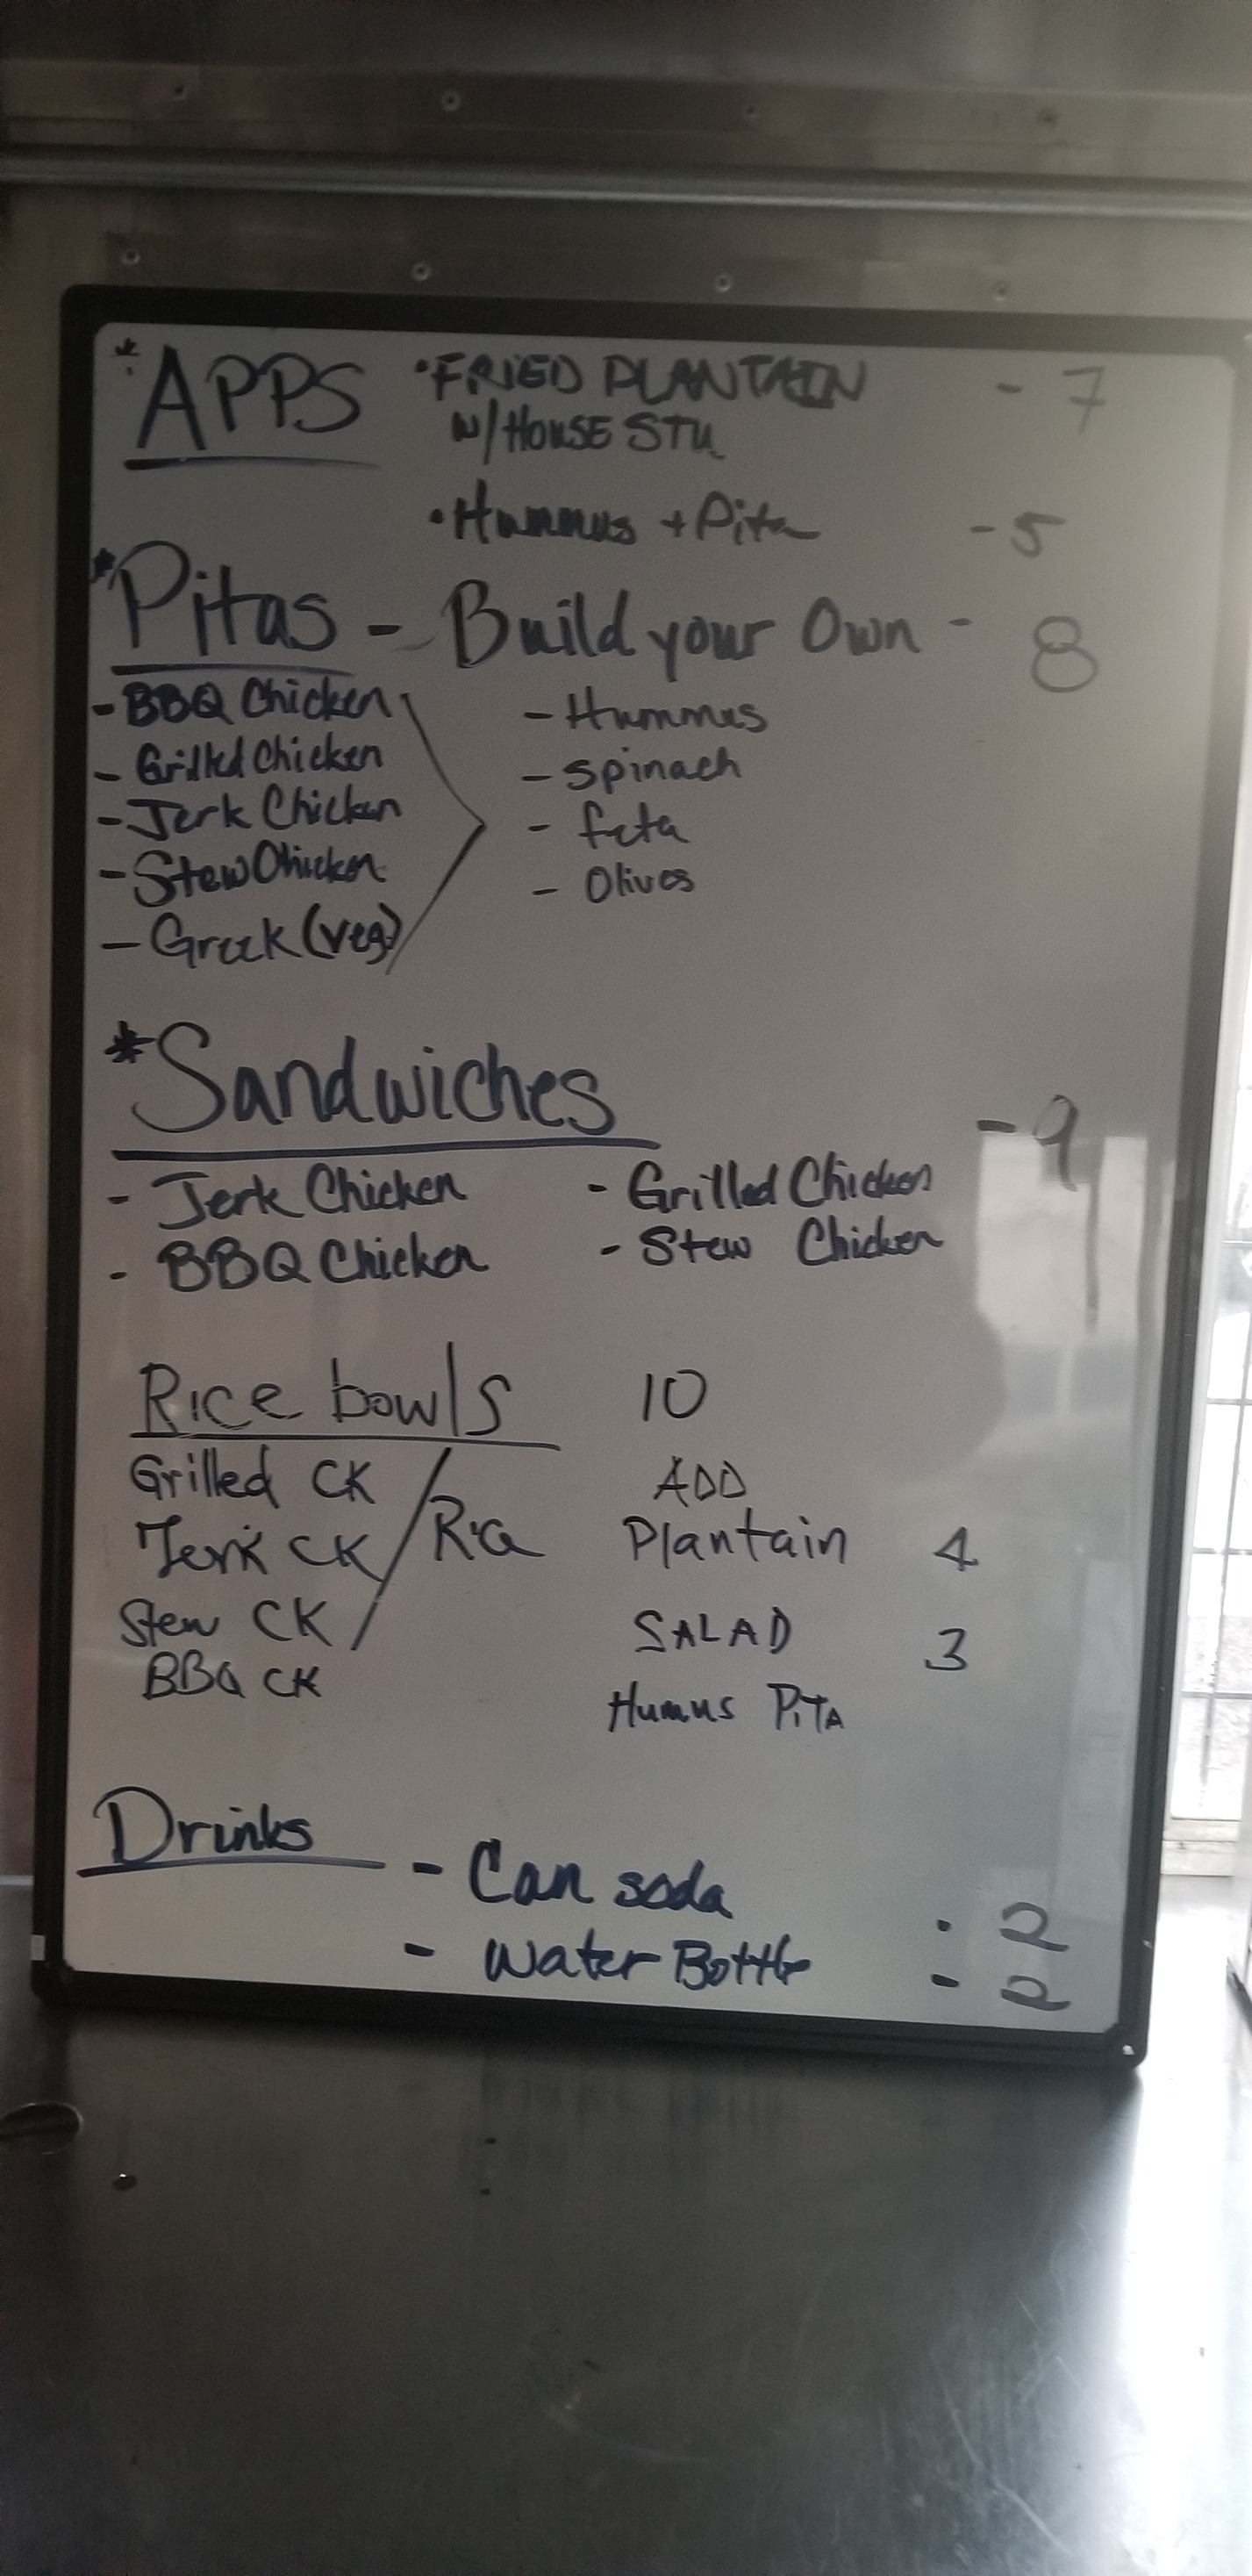 * APPS • FRIED PLANTAIN - 7
W/ HOUSE
• Hummus + Pita - 5
* Pitas - Build your Own - 8
- BBQ Chicken - Hummus
- Grilled Chicken - Spinach
- Jerk Chicken - feta
- Stew Chicken - Olives
- Greek (veg)
* Sandwiches - 9
- Jerk Chicken - Grilled Chicken
- BBQ Chicken - Stew Chicken
Rice bowls 10
Grilled CK ADD
Jerk CK / Rice Plantain 4
Stew CK SALAD 3
BBQ CK Humus PiTA
Drinks - Can soda - 2
- Water Bottle - 2